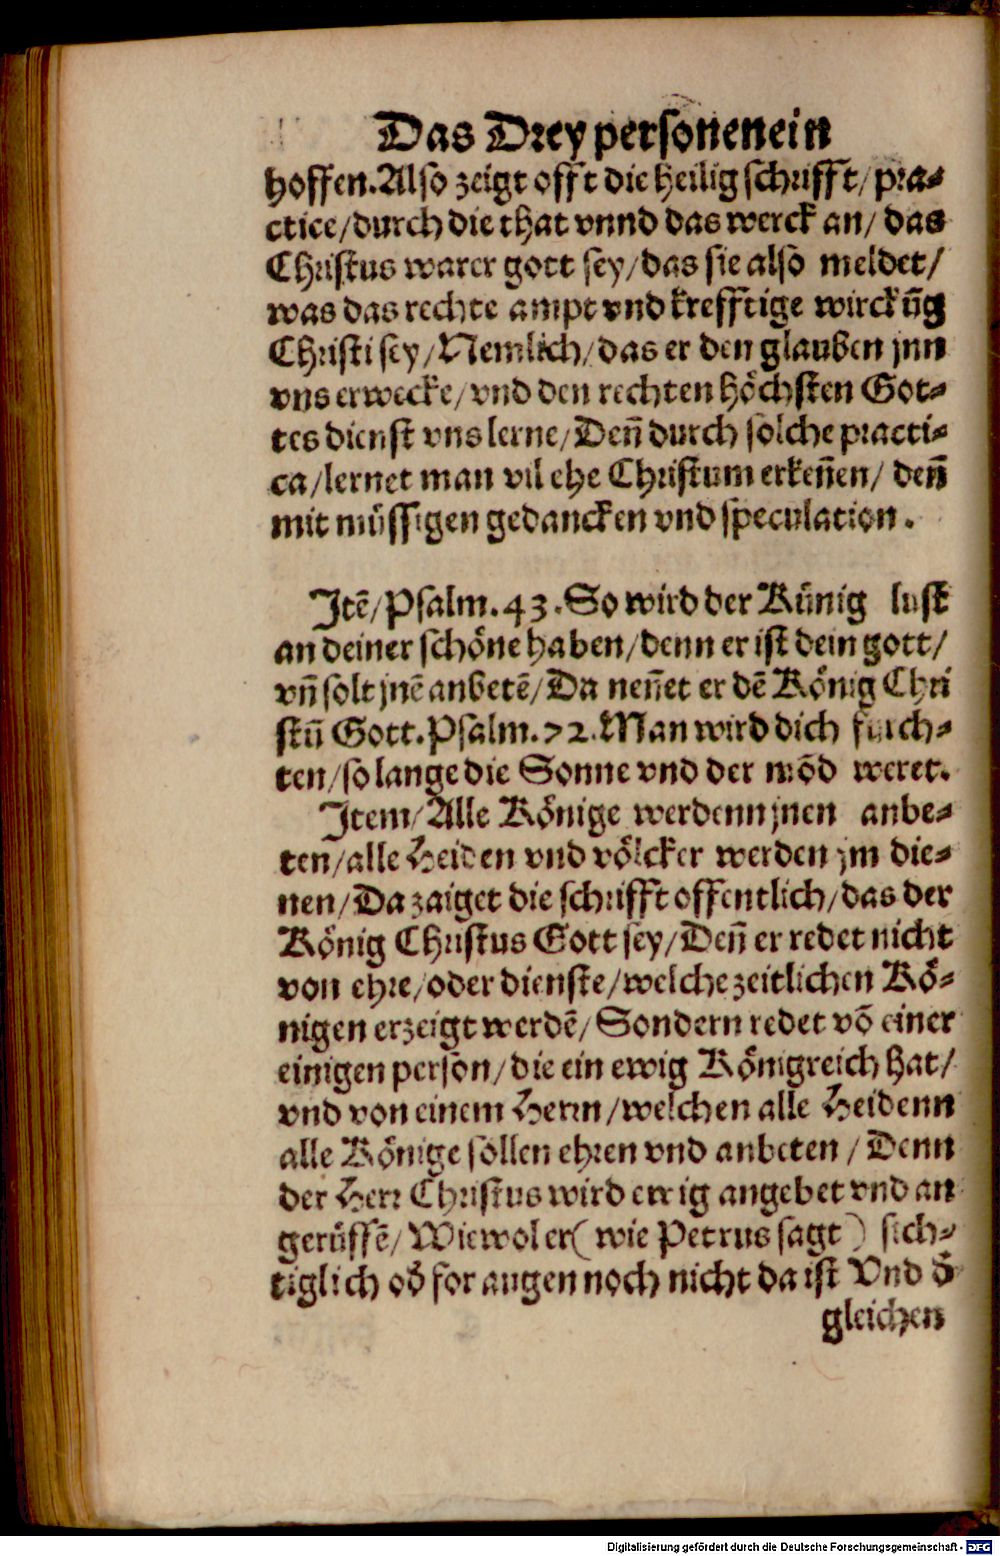 Das Drey personen ein
hoffen. Also zeigt offt die heilig schrifft/ pra-
ctice/ durch die that vnnd das werck an/ das
Christus warer gott sey/ das sie also meldet/
was das rechte ampt vnd krefftige wirckūg
Christi sey/ Nemlich/ das er den glauben jnn
vns erwecke/ vnd den rechten höchsten Got-
tes dienst vns lerne/ Deñ durch solche practi-
ca/ lernet man vil ehe Christum erkeñen/ deñ
mit müssigen gedancken vnd speculation.
Itē/ Psalm. 43. So wird der Künig lust
an deiner schöne haben/ denn er ist dein gott/
vñ solt jnē anbetē/ Da neñet er dē König Chri
stū Gott. Psalm. 72. Man wird dich fürch-
ten/ so lange die Sonne vnd der mōd weret.
Item/ Alle Könige werdenn jnen anbe-
ten/ alle Heiden vnd völcker werden jm die-
nen/ Da zaiget die schrifft offentlich/ das der
König Christus Gott sey/ Deñ er redet nicht
von ehre/ oder dienste/ welche zeitlichen Kö-
nigen erzeigt werdē/ Sondern redet vō einer
einigen person/ die ein ewig Königreich hat/
vnd von einem Herrn/ welchen alle Heidenn
alle Könige sollen ehren vnd anbeten/ Denn
der Herr Christus wird ewig angebet vnd an
gerüffē/ Wiewol er (wie Petrus sagt) sich-
tiglich od̕ for augen noch nicht da ist Vnd d̕
gleichen
Digitalisierung gefördert durch die Deutsche Forschungsgemeinschaft - DFG